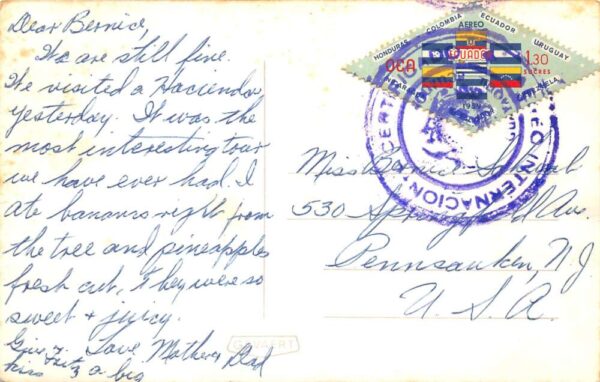 Dear Bernice,
We are still fine.
We visited a Hacienda
yesterday. It was the
most interesting tour
we have ever had. I
ate bananas right from
the tree and pineapples
fresh cut, & they were so
sweet & juicy.
Love Mother & Dad
kiss a big
HONDURAS COLOMBIA ECUADOR URUGUAY
AEREO
OEA ECUADOR 1.30
SUCRES
1959
CORREO INTERNACIONAL
Miss Bernice
530 Ave.
Pennsauken, N.J
U.S.A.
GEVAERT